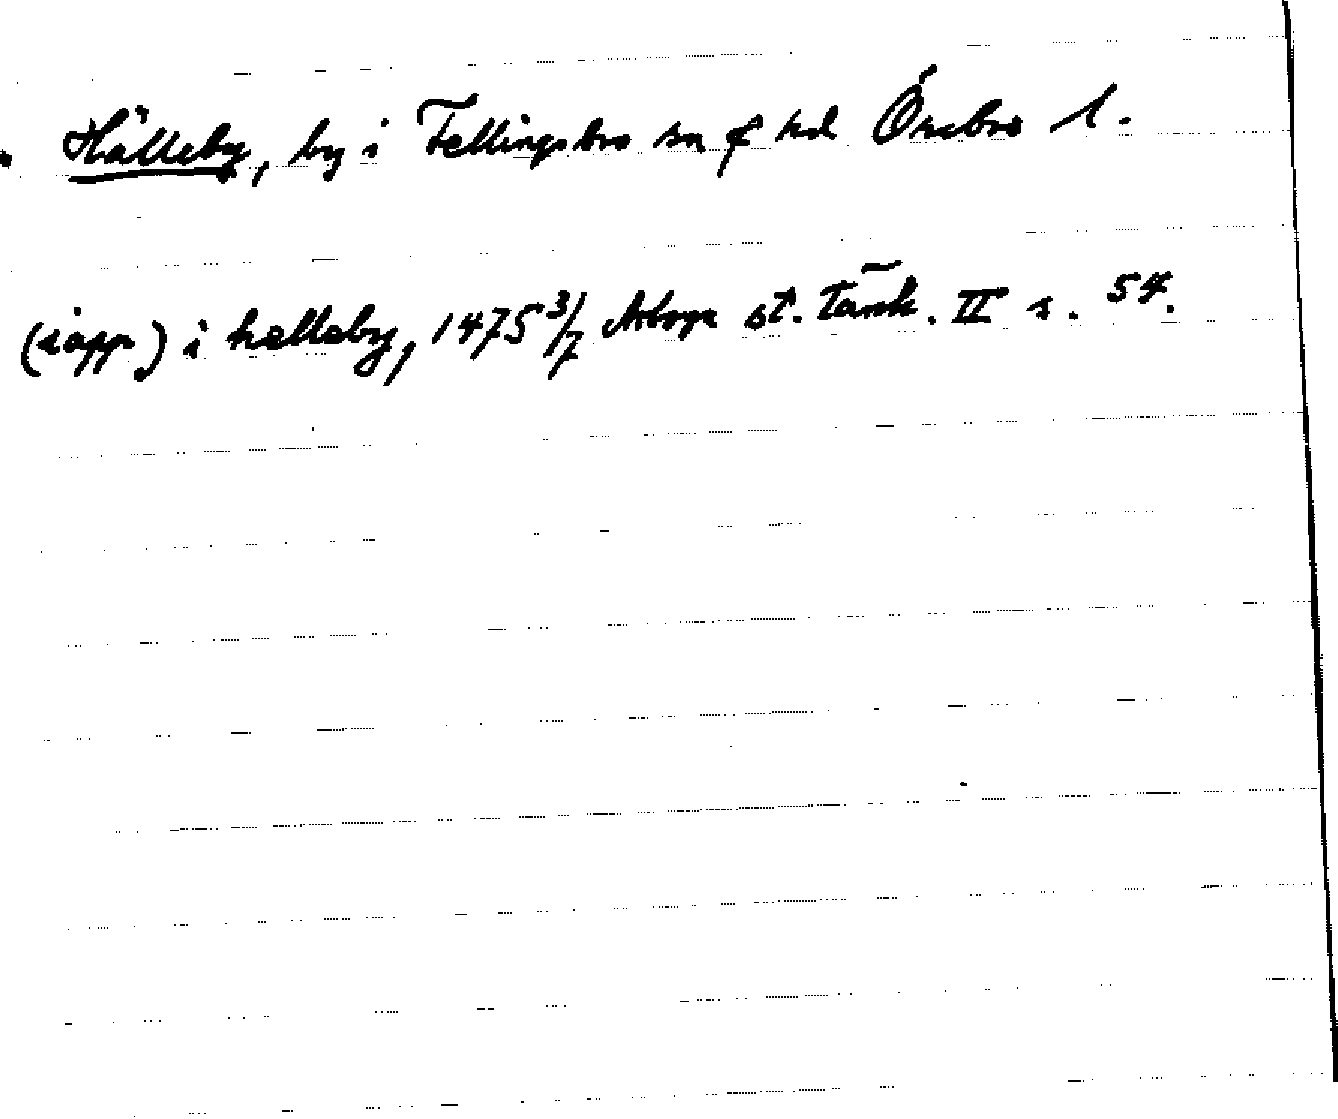 Hälleby, by i Fellingsbro sn o hd Örebro l.
(iapp) i hælleby, 1475 3/7 Arboga st. tänk. II s. 54.